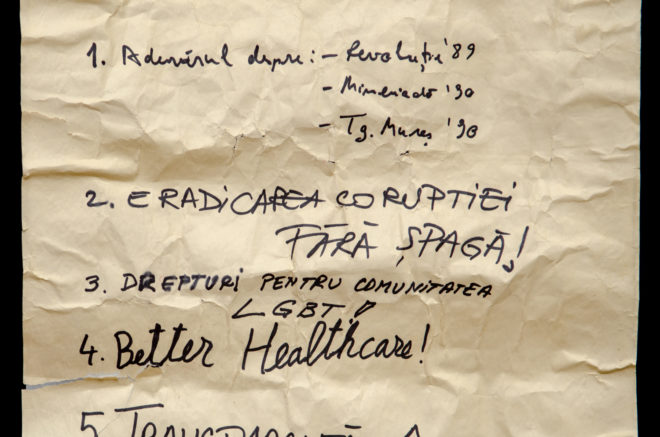 1. Adevărul despre: - Revoluția '89
- Mineriada '90
- Tg. Mureș '90
2. ERADICAREA CORUPTIEI
FĂRĂ ȘPAGĂ!
3. DREPTURI PENTRU COMUNITATEA
LGBT!
4. Better Healthcare!
5